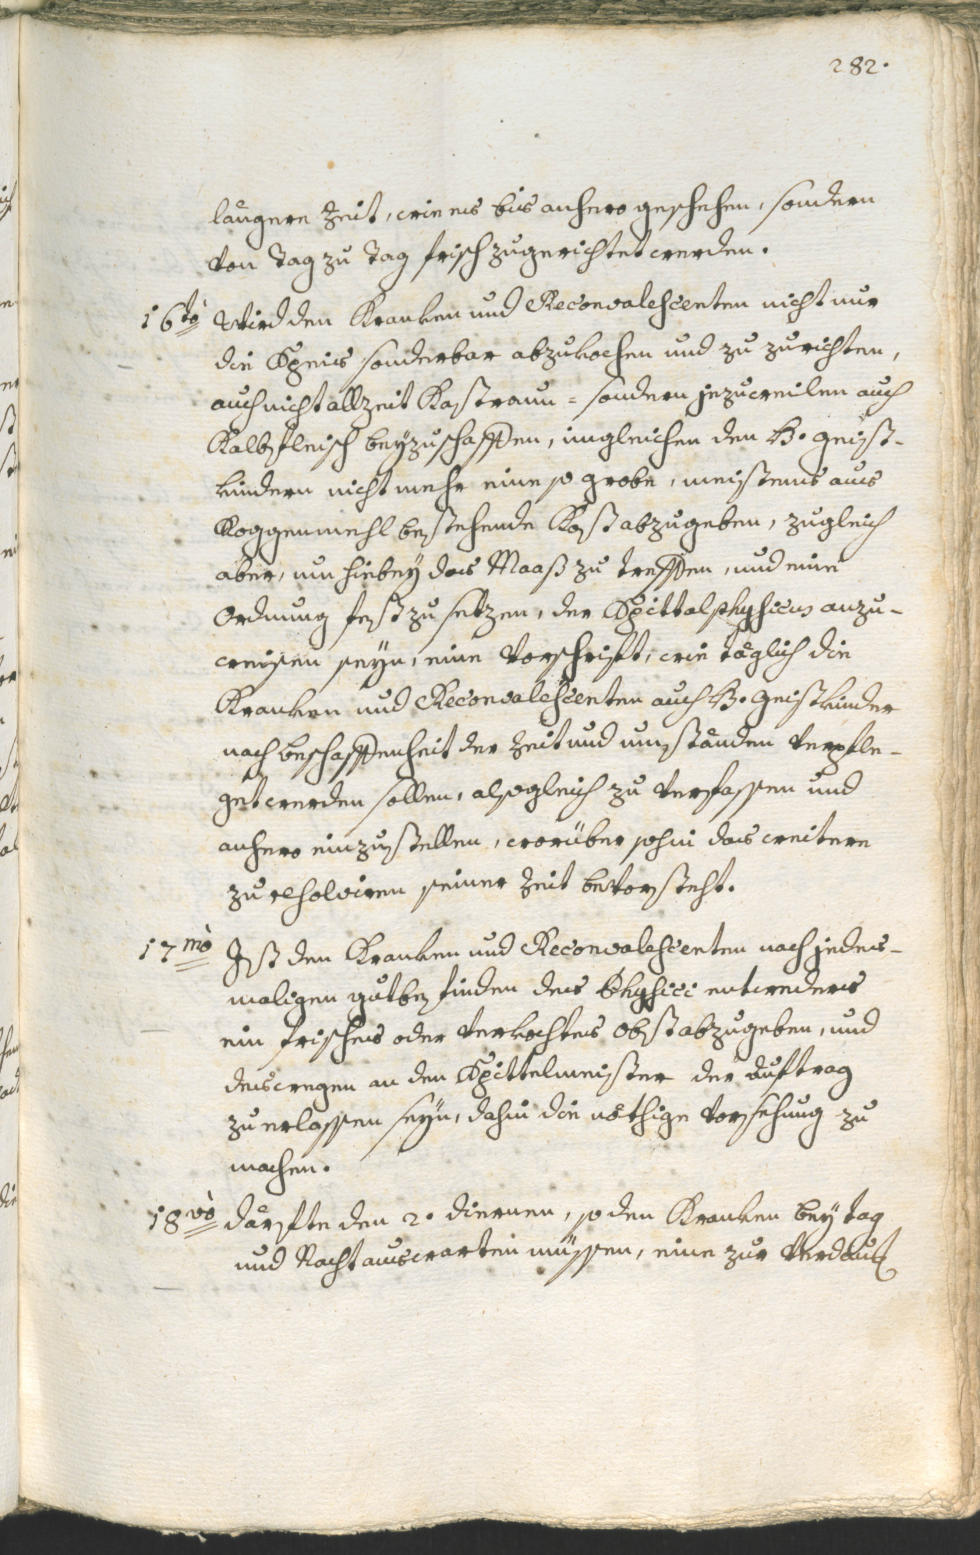 282.
längere Zeit, wie es bis anhero geschehen, sondern
von Tag zu Tag frisch zugerichtet werden.
16tò Wird den Kranken und Reconvalescenten nicht nur
die Speis sonderbar abzukochen und zu zurichten,
auch nicht allzeit Kastraun = sondern jezuweilen auch
Kalbfleisch beyzuschaffen, imgleichen den H. Geist-
kindern nicht mehr eine so grobe, meistens aus
Roggenmehl bestehende Kost abzugeben, zugleich
aber, um hiebey das Maaß zu treffen, und eine
Ordnung fest zu setzen, der Spittalphysicus anzu-
weisen seyn, eine Vorschrift, wie täglich die
Kranken und Reconvalescenten auch H. Geistkinder
nach beschaffenheit der Zeit und umständen verpfle-
get werden sollen, alsogleich zu verfassen und
anhero einzustellen, worüber sohin das weitere
zu resolviren seiner Zeit bevorsteht.
17mò Ist den Kranken und Reconvalescenten nach jedes-
maligen gutbefinden des Physici entweders
ein frisches oder verkochtes Obst abzugeben, und
deswegen an den Spittelmeister der auftrag
zu erlassen seyn, dahin die nöthige Vorsehung zu
machen.
18vò därfte den 2. diernen, so den Kranken bey tag
und Nacht auswarten müssen, eine zur Verdau